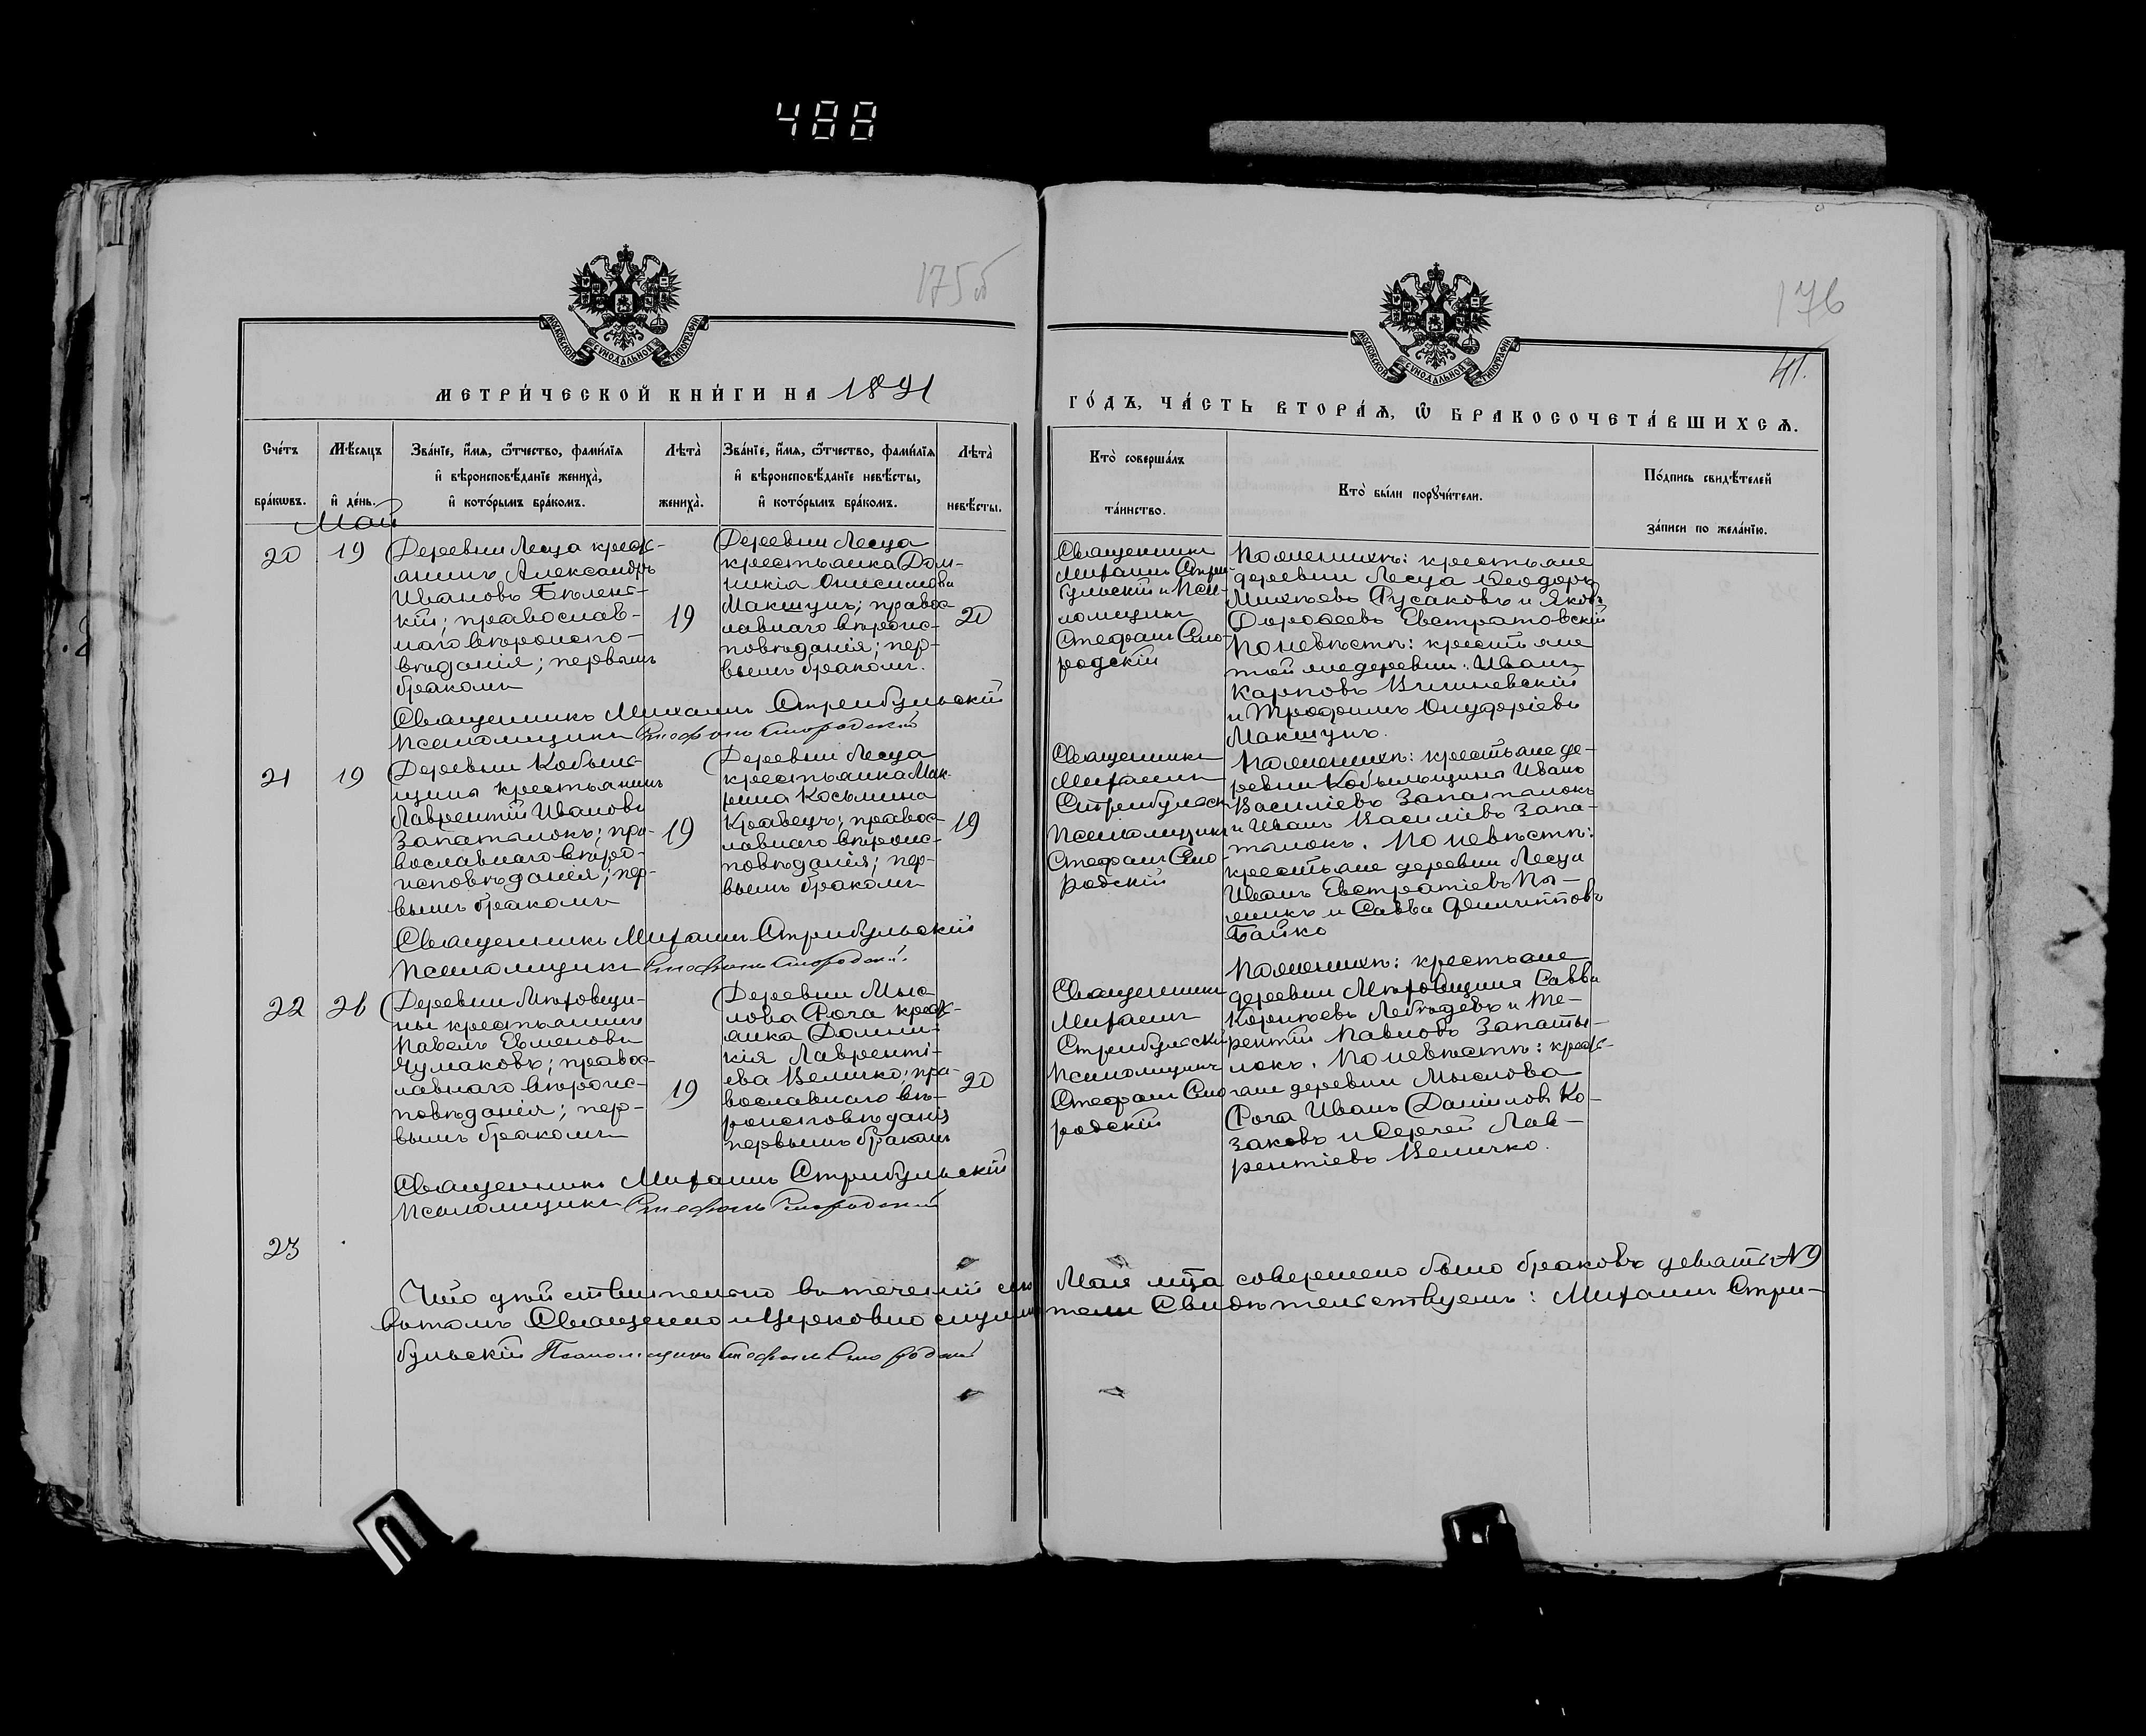 488
175об
176
41.
МОСКОВСКОЙ СѴНОДАЛЬНОЙ ТИПОГРАФІИ
МОСКОВСКОЙ СѴНОДАЛЬНОЙ ТИПОГРАФІИ
МЕТРИ́ЧЕСКОЙ КНИ́ГИ НА 1891
ГО́ДЪ, ЧА́СТЬ ВТОРА́Ѧ, Ѡ҆ БРАКОСОЧЕТА́ВШИХСѦ.
Сче́тъ
бра́кѡвъ.
Мѣ́сѧцъ
и҆ де́нь.
Зва́нїе, и҆́мѧ, ѻ҆́тчество, фами́лїѧ
и҆ вѣроисповѣ́данїе жениха̀,
и҆ кото́рымъ бра́комъ.
Лѣта̀
жениха̀.
Зва́нїе, и҆́мѧ, ѻ҆́тчество, фами́лїѧ
и҆ вѣроисповѣ́данїе невѣ́сты,
и҆ кото́рымъ бра́комъ.
Лѣта̀
невѣ́сты.
Кто̀ соверша́лъ
та́инство.
Кто̀ бы́ли порꙋчи́тели.
По́дпись свидѣ́телей
за́писи по жела́нїю.
Май
20
19
Деревни Лесца крест-
янинъ Александръ
Ивановъ Бѣленс-
кій; православ-
наго вѣроиспо-
вѣданія; первымъ
бракомъ
19
Деревни Лесца
крестьянка Дом-
никія Онисимова
Макшунъ; правос-
лавнаго вѣроис-
повѣданія; пер-
вымъ бракомъ.
20
Священникъ
Михаилъ Стри-
бульскій и Пса-
ломщикъ
Стефанъ Смо-
родскій
По женихѣ: крестьяне
деревни Лесца Ѳеодоръ
Михѣевъ Русаковъ и Яковъ
Дороѳеевъ Евстратовскій
По невѣстѣ: крестьяне
той же деревни: Иванъ
Карповъ Вишневскій
и Трофимъ Онуфріевъ
Макшунъ.
Священникъ Михаилъ Стрибульскій
Псаломщикъ Стефанъ Смородскій
21
19
Деревни Кобыль-
щины крестьянинъ
Лаврентій Ивановъ
Запатылокъ; пра-
вославнаго вѣро-
исповѣданія; пер-
вымъ бракомъ
19
Деревни Лесца
крестьянка Мак-
рина Косьмина
Кравецъ; правос-
лавнаго вѣроис-
повѣданія; пер-
вымъ бракомъ
19
Священникъ
Михаилъ
Стрибульскій
Псаломщикъ
Стефанъ Смо-
родскій
По женихѣ: крестьяне де-
ревни Кобыльщина Иванъ
Василіевъ Запатылокъ
и Иванъ Василіевъ Запа-
тылокъ. По невѣстѣ:
крестьяне деревни Лесца
Иванъ Евстратіевъ
и Савва Филипповъ
Байко
Священникъ Михаилъ Стрибульскій
Псаломщикъ Стефанъ Смородскій.
22
26
Деревни Мѣховщи-
ны крестьянинъ
Павелъ Евменовъ
Чумаковъ; правос-
лавнаго вѣроис-
повѣданія; пер-
вымъ бракомъ
19
Деревни Мыс-
лова Рога крест-
янка Домни-
кія Лавренті-
ева Величко; пра-
вославнаго вѣ-
роисповѣданія
первымъ бракомъ
20
Священникъ
Михаилъ
Стрибульскій
Псаломщикъ
Стефанъ Смо-
родскій
По женихѣ: крестьяне
деревни Мѣховщина Савва
Корнѣевъ Лебедевъ и Те-
рентій Павловъ Запаты-
локъ. По невѣстѣ: крест-
яне деревни Мыслова
Рога Иванъ Даніиловъ Ко-
заковъ и Сергей Лав-
рентіевъ Величко.
Священникъ Михаилъ Стрибульскій
Псаломщикъ Стефанъ Смородскій
23
Что дѣйствительно въ теченіи сего Мая мца совершено было браковъ девять № 9
въ томъ Священно и Церковно служители Свидѣтельствуемъ: Михаилъ Стри-
бульскій Псаломщикъ Стефанъ Смородскій